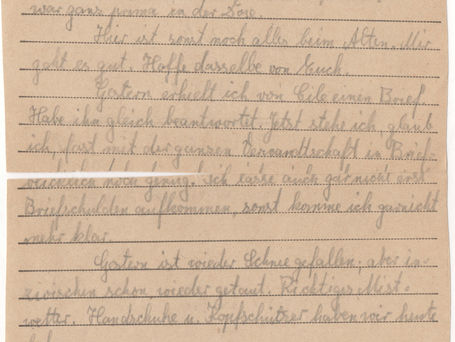 war ganz prima in der Dose.
Hier ist sonst noch alles beim Alten. Mir
geht es gut. Hoffe dasselbe von Euch.
Gestern erhielt ich von Cilo einen Brief.
Habe ihn gleich beantwortet. Jetzt stehe ich, glaub
ich, fast mit der ganzen Verwandtschaft in Brief-
noch genug. Ich lasse auch gar nicht erst
Briefschulden aufkommen, sonst komme ich garnicht
mehr klar.
Gestern ist wieder Schnee gefallen, aber in-
zwischen schon wieder getaut. Richtiges Mist-
wetter. Handschuhe u. Kopfschützer haben wir heute